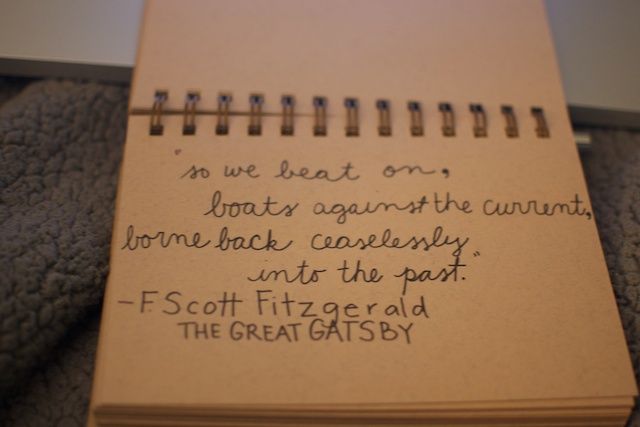 "so we beat on,
boats against the current,
borne back ceaselessly
into the past."
-F. Scott Fitzgerald
THE GREAT GATSBY